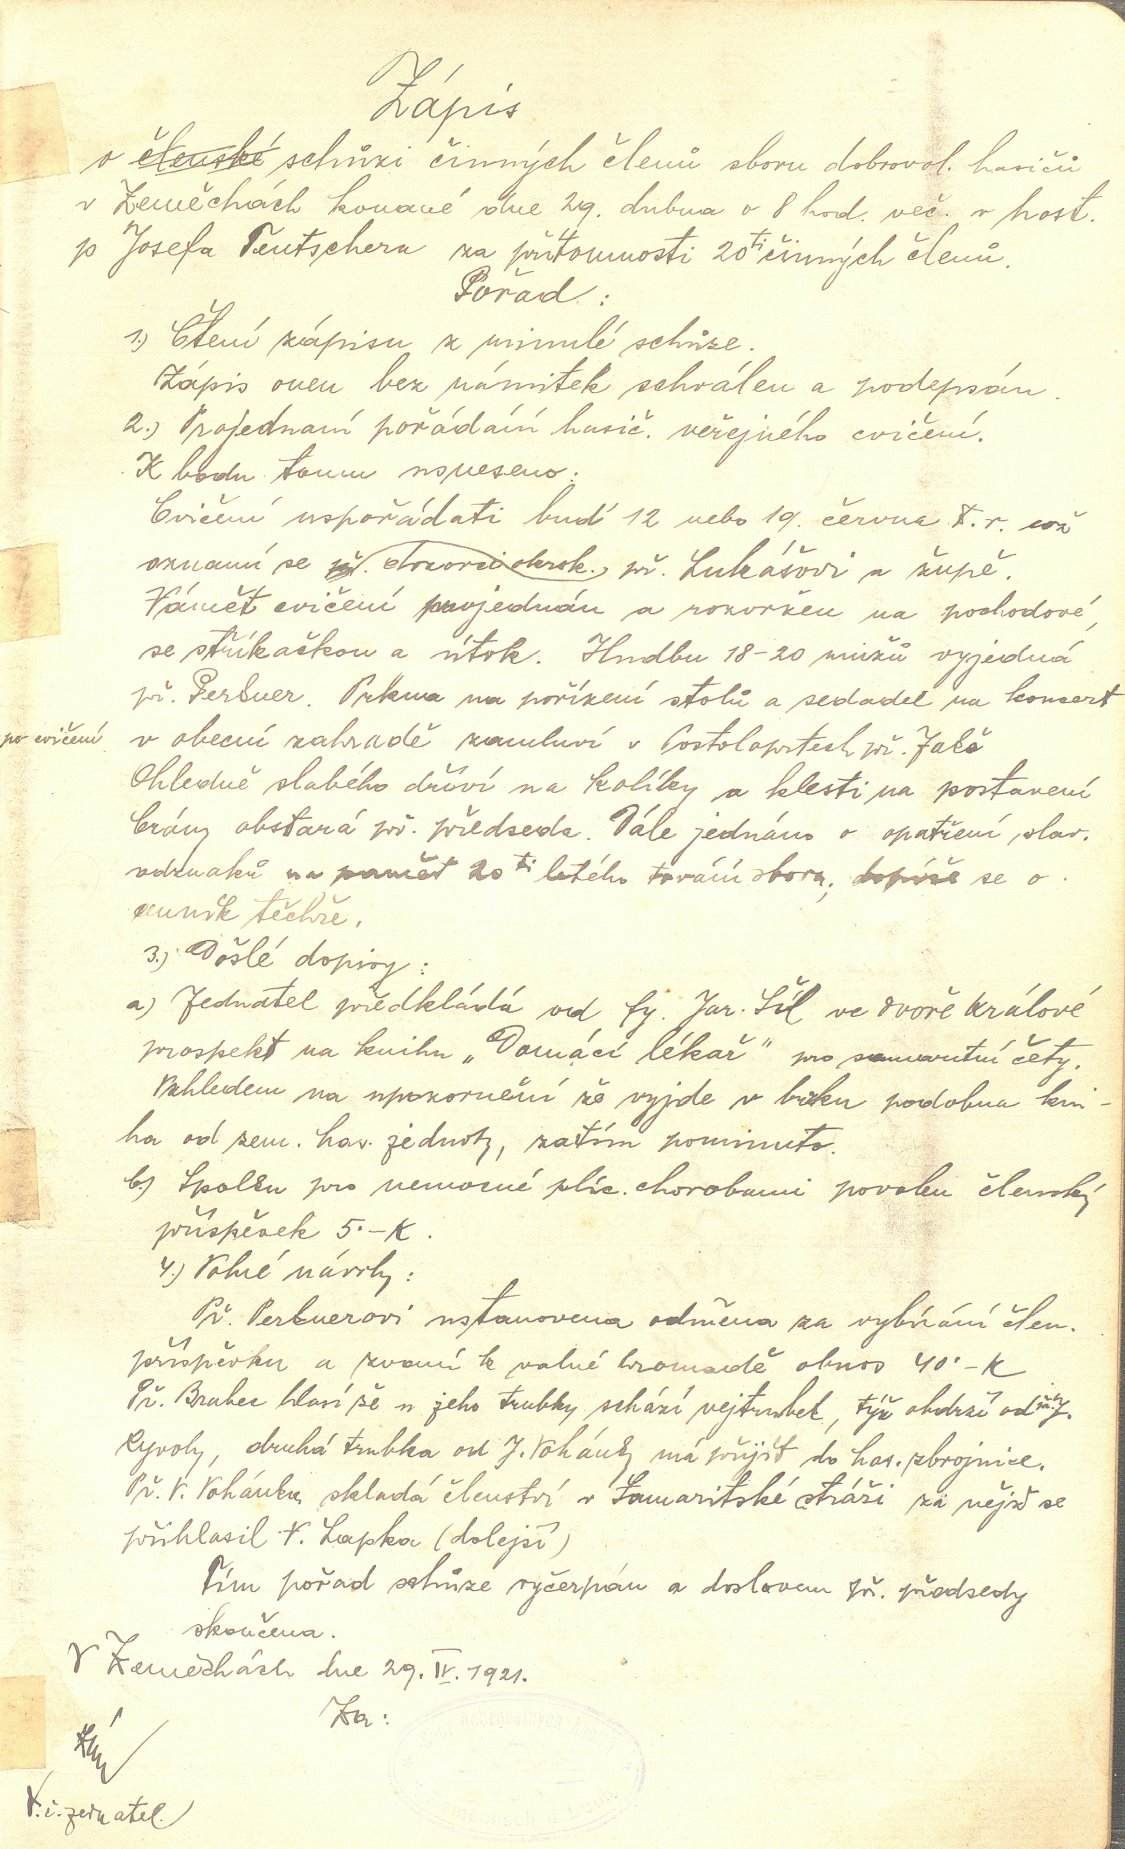 Zápis
o členské schůzi činných členů sboru dobrovol. hasičů
v Zeměchách konané dne 29. dubna o 8 hod. več. v host.
p Josefa Teutschera za přítomnosti 20ti činných členů.
Pořad :
1.) Čtení zápisu z minulé schůze.
Zápis onen bez námitek schválen a podepsán.
2.) Projednaní pořádání hasič. veřejného cvičení.
K bodu tomu usneseno:
Cvičení uspořádati buď 12 nebo 19. června t. r. což
oznamí se př. dozorci okrsk. př. Lukášovi a župě.
Námět cvičení projednán a rozvržen na pochodové,
se stříkačkou a útok. Hudbu 18-20 mužů vyjedná
př. Perlner. Prkna na pořízení stolů a sedadel na koncert
po cvičení v obecní zahradě zamluví v Postoloprtech př.
Ohledně slabého dříví na kolíky a klesti na postavení
brány obstará př. předseda. Dále jednáno o opatření slav.
odznaků na paměť 20ti letého trvání sboru; dopíše se o
těchže.
3.) Došlé dopisy:
a) Jednatel předkládá od fy. Jar. Šíl ve Dvoře Králové
prospekt na knihu „Domácí lékař" pro samaritní čety.
Vzhledem na upozornění že vyjde v brzku podobna kni-
ha od zem. has. jednoty, zatím pominuto.
b.) Spolku pro nemocné plic. chorobami povolen členský
příspěvek 5.-K.
4.) Volné návrhy:
Př. Perlnerovi ustanovena odměna za vybírání člen.
příspěvku a zvaní k valné hromadě obnos 40.-K
Př. Brabec hlasí že u jeho trubky schází nejtrubek, týž obdrží od J.
druhá trubka od J. Vohánky má přijít do has. zbrojnice.
Př. V. Vohánka skladá členství v Samaritské stráži za nějž se
přihlasil V. Lapka (dolejší)
Tím pořad schůze vyčerpán a doslovem př. předsedy
skončena.
V Zeměchách dne 29. IV. 1921.
Za:
t. č. jednatel.